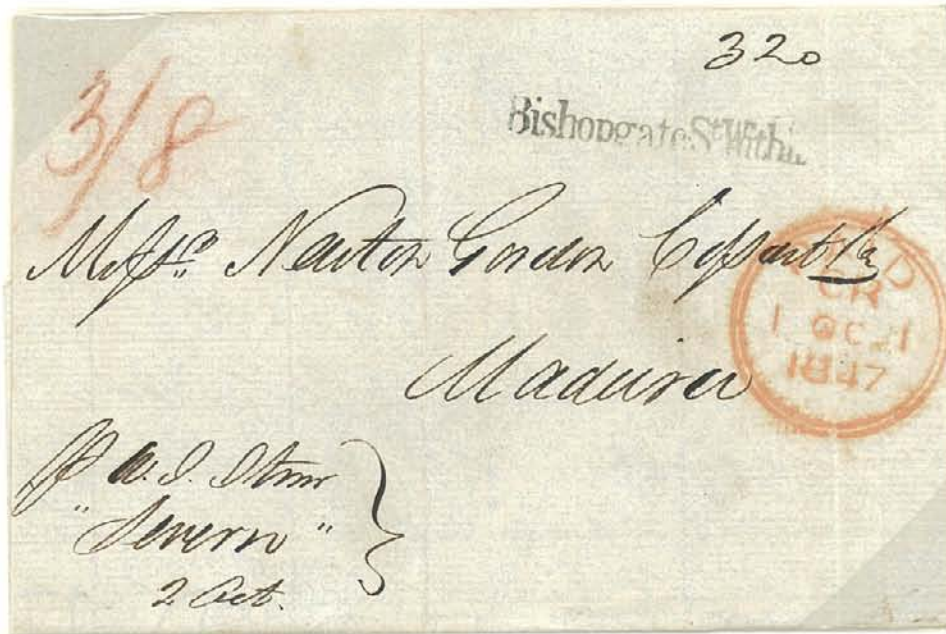 320
3/8
Bishopgate St. Within
Messrs. Newton Gordon Cossart & Co
Madeira
PAID
1 OC 1
1847
p W. I. Stmr
"Severn"
2 Oct.